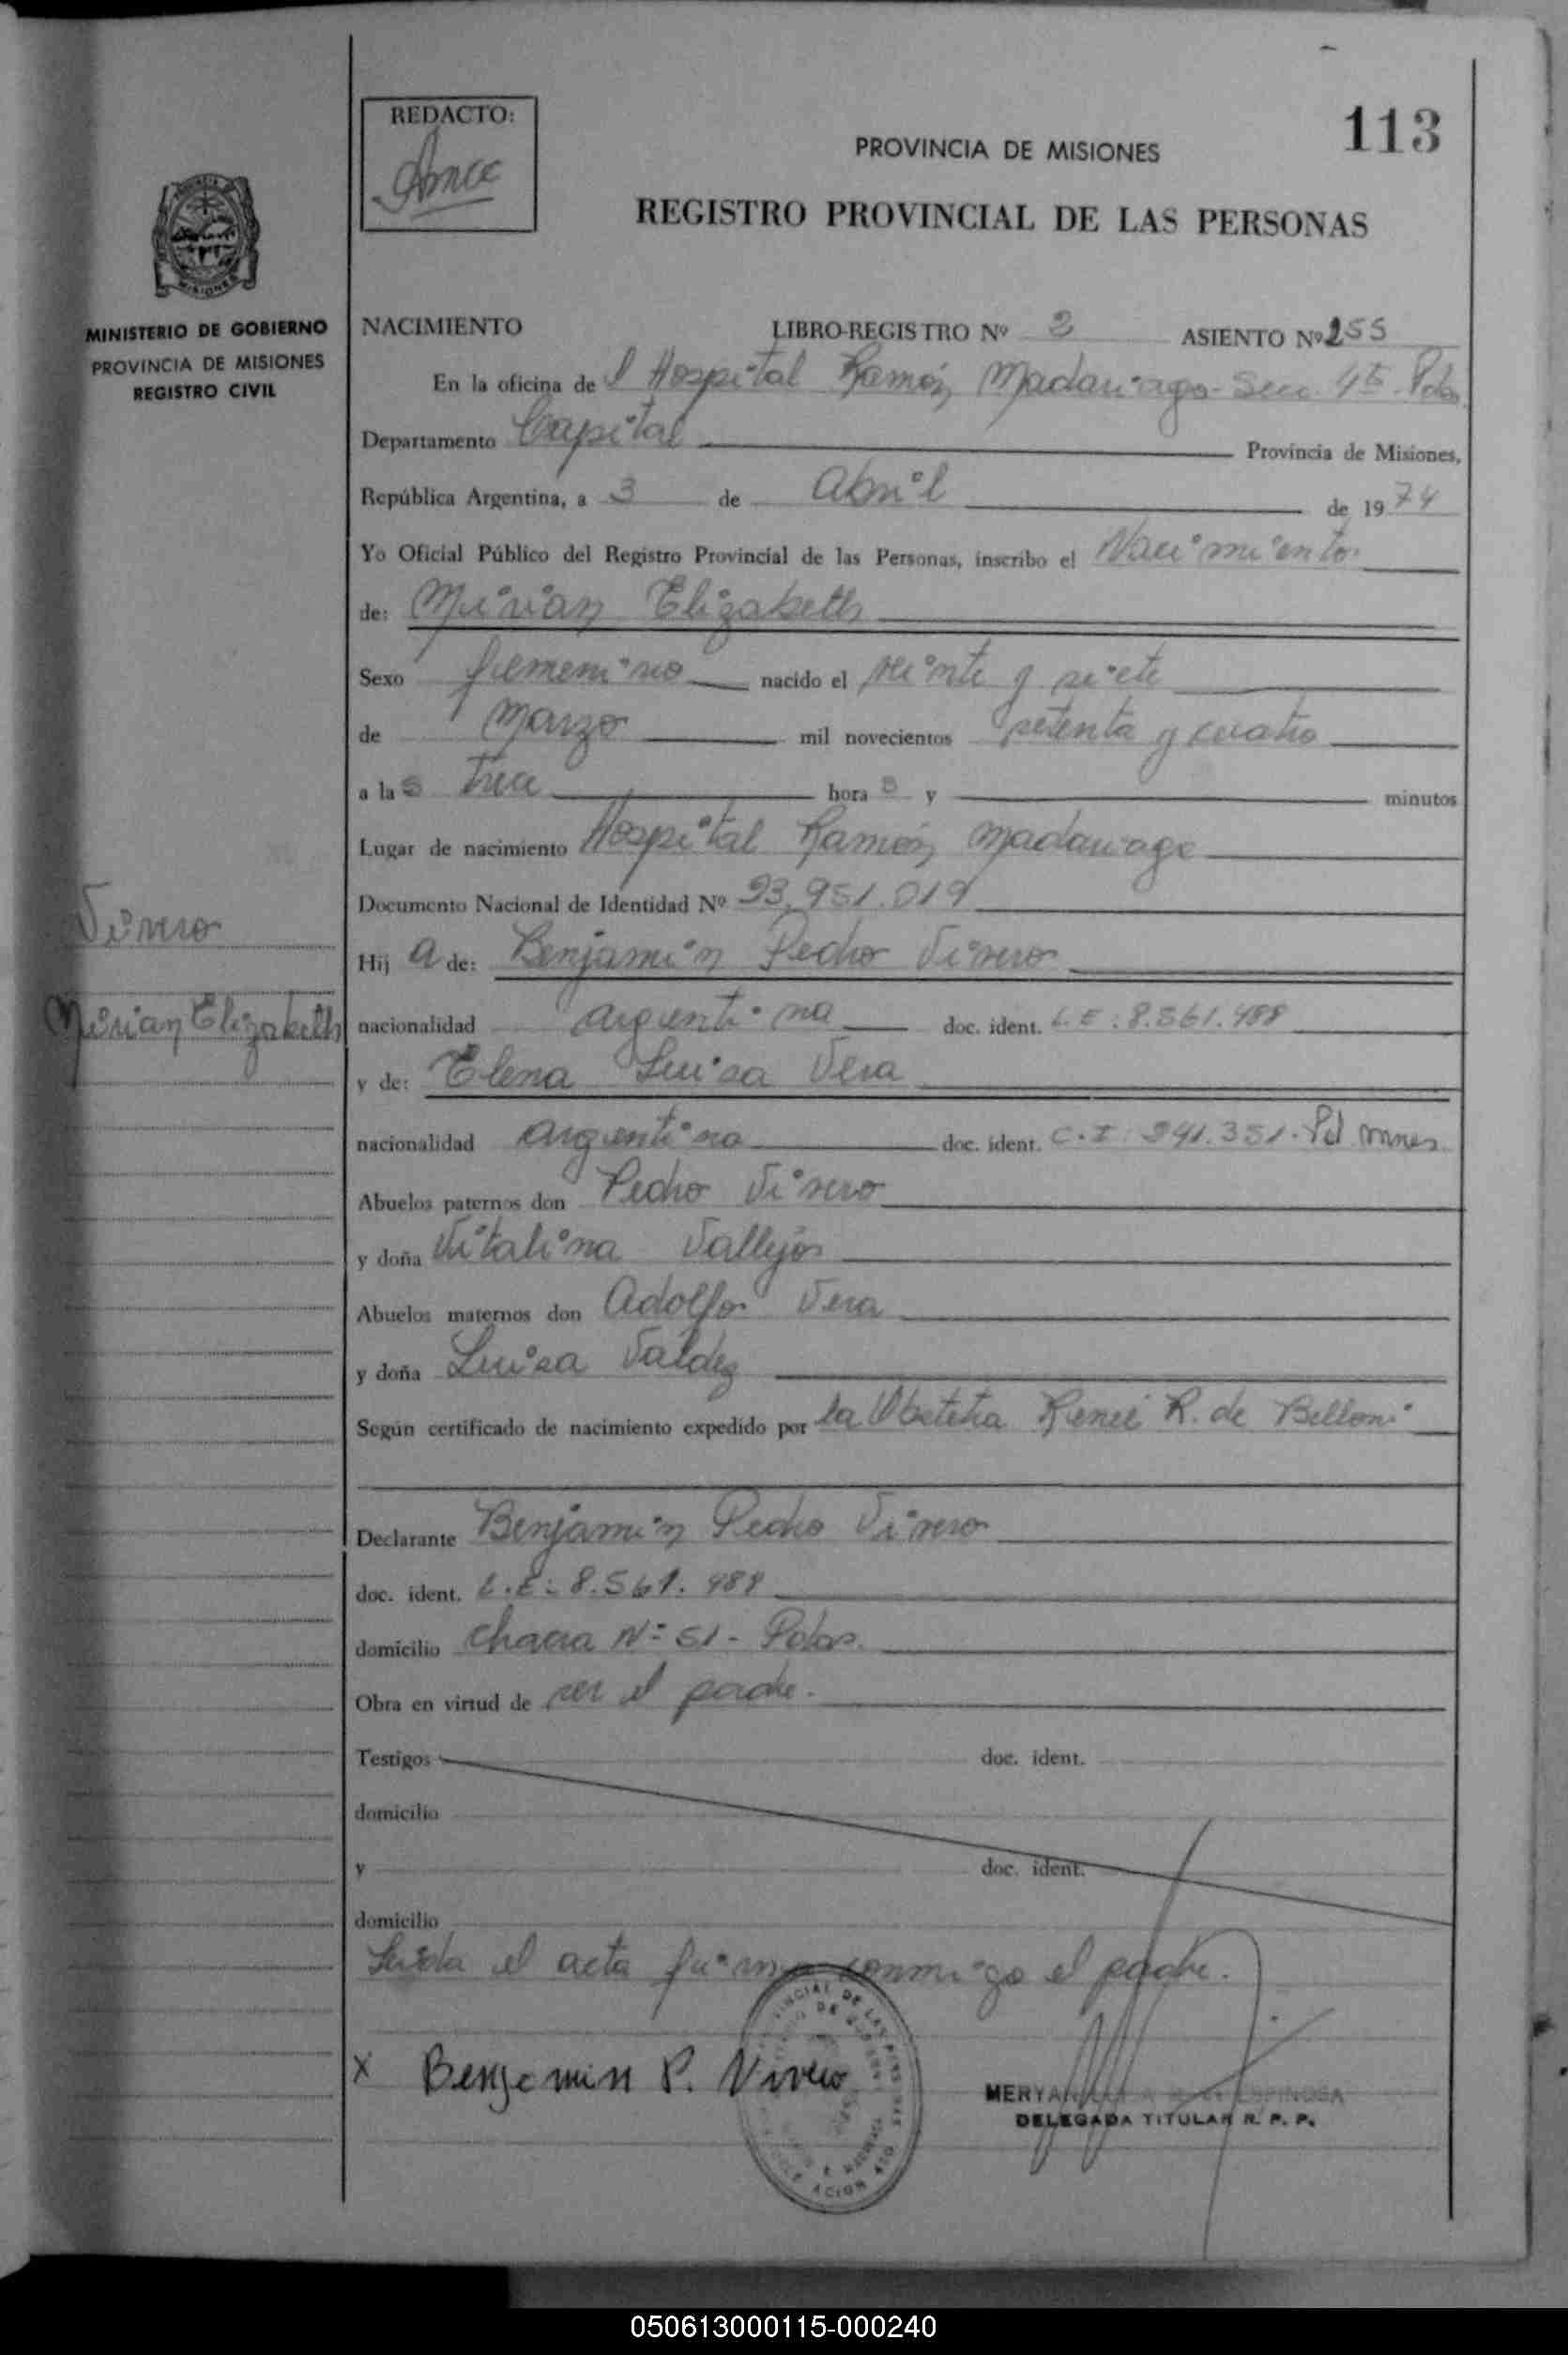 113
REDACTO:
PROVINCIA DE MISIONES
REGISTRO PROVINCIAL DE LAS PERSONAS
MINISTERIO DE GOBIERNO
PROVINCIA DE MISIONES
REGISTRO CIVIL
NACIMIENTO LIBRO-REGISTRO Nº 2 ASIENTO Nº 255
En la oficina de l Hospital Ramón Madariaga - Secc. 4ta. Pdas.
Departamento Capital Provincia de Misiones,
República Argentina, a 3 de Abril de 1974
Yo Oficial Público del Registro Provincial de las Personas, inscribo el Nacimiento
de: Mirian Elizabeth
Sexo femenino nacido el veinte y siete
de Marzo mil novecientos setenta y cuatro
a las trece horas y minutos
Lugar de nacimiento Hospital Ramón Madariaga
Documento Nacional de Identidad Nº 23.951.019
Vivero
Hij a de: Benjamin Pedro Vivero
Mirian Elizabeth
nacionalidad argentina doc. ident. L.E: 8.561.488
y de: Elena Luisa Vera
nacionalidad argentina doc. ident. C.I: 241.351. Pol Mnes
Abuelos paternos don Pedro Vivero
y doña Vitalina Vallejos
Abuelos maternos don Adolfo Vera
y doña Luisa Valdez
Según certificado de nacimiento expedido por la Obstetra Reneé R. de Belloni
Declarante Benjamin Pedro Vivero
doc. ident. L.E: 8.561.488
domicilio chacra Nº 51 - Pdas.
Obra en virtud de ser el padre.
Testigos doc. ident.
domicilio
y doc. ident.
domicilio
Leída el acta firma conmigo el padre.
X Benjamin P. Vivero
MERY ESPINOSA
DELEGADA TITULAR R. P. P.
050613000115-000240